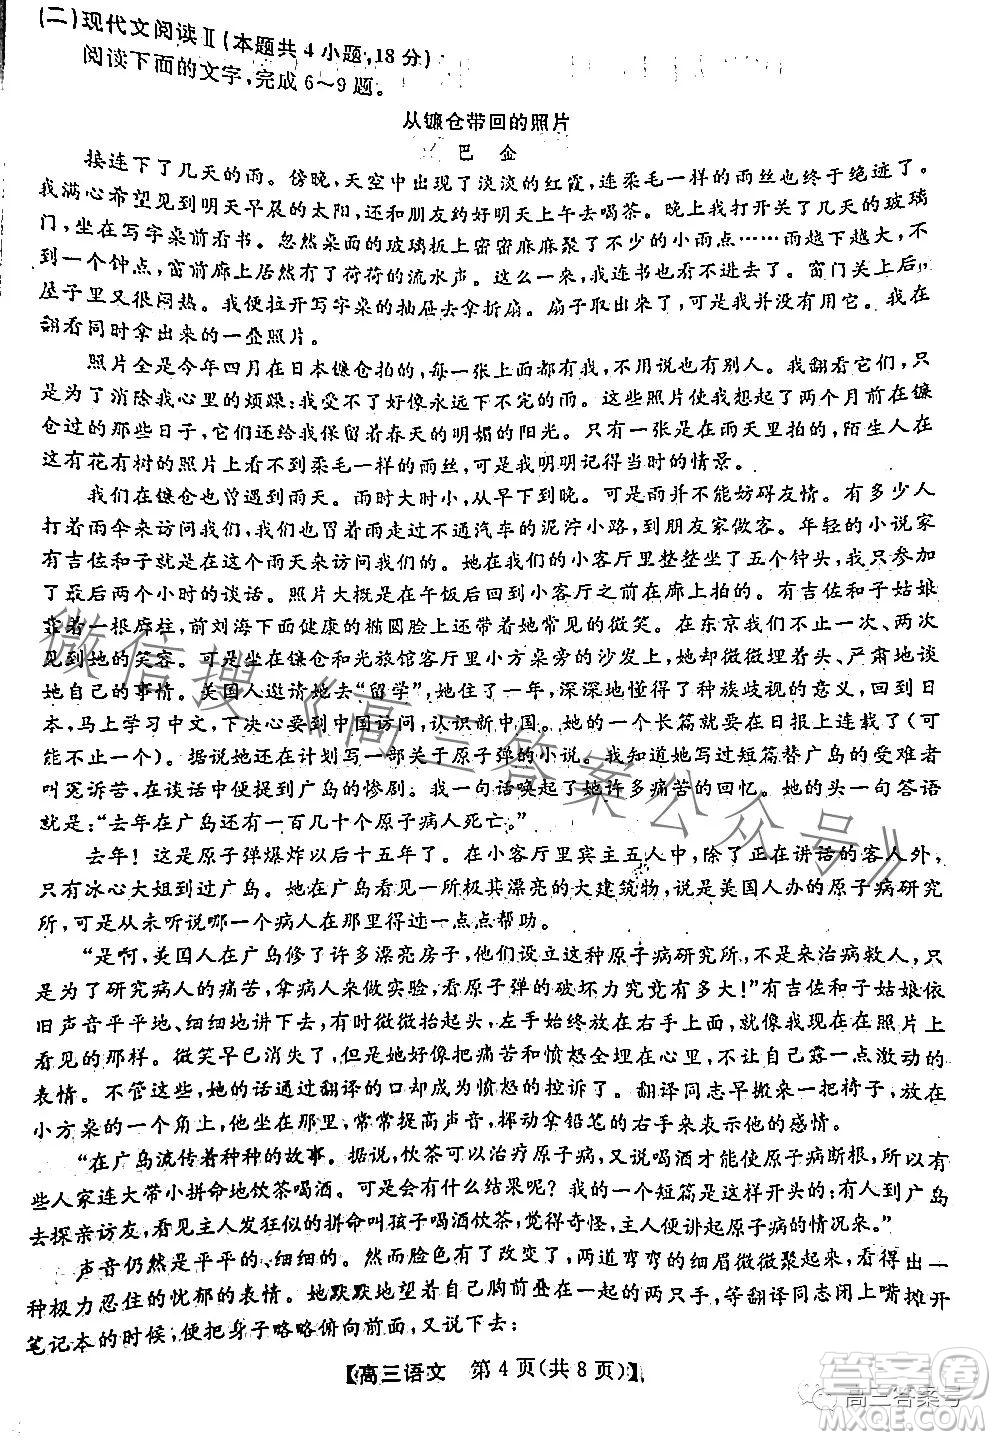 (二)现代文阅读Ⅱ(本题共4小题,18分)
阅读下面的文字,完成6～9题。
从镰仓带回的照片
巴 金
接连下了几天的雨。傍晚,天空中出现了淡淡的红霞,连柔毛一样的雨丝也终于绝迹了。
我满心希望见到明天早晨的太阳,还和朋友约好明天上午去喝茶。晚上我打开关了几天的玻璃
门,坐在写字桌前看书。忽然桌面的玻璃板上密密麻麻聚了不少的小雨点……雨越下越大,不
到一个钟点,窗前廊上居然有了荷荷的流水声。这么一来,我连书也看不下去了。窗门关上后,
屋子里又很闷热。我便拉开写字桌的抽屉去拿折扇。扇子取出来了,可是我并没有用它。我在
翻看同时拿出来的一叠照片。
照片全是今年四月在日本镰仓拍的,每一张上面都有我,同时也有别人。我翻看它们,只
是为了消除我心里的烦躁:我受不了好像永远下不完的雨。这些照片使我想起了两个月前在镰
仓过的那些日子,它们还给我保留着春天的明媚的阳光。只有一张是在雨天里拍的,陌生人在
这有花有树的照片上看不到柔毛一样的雨丝,可是我明明记得当时的情景。
我们在镰仓也曾遇到雨天。雨时大时小,从早下到晚。可是雨并不能妨碍友情。有多少人
打着雨伞来访问我们,我们也冒着雨走过不通汽车的泥泞小路,到朋友家做客。年轻的小说家
有吉佐和子就在这个雨天来访问我们。她在我们的小客厅里整整坐了五个钟头,我只参加
了最后两个小时的谈话。照片大概是在午饭后回到小客厅以前在廊上拍的。有吉佐和子姑娘
靠着一根廊柱,前刘海下面健康的椭圆脸上还带着她常见的微笑。在东京我们不止一、两次
见到她的笑容。可是在镰仓和光旅馆客厅里小方桌旁的沙发上,她却微微埋着头、严肃地谈
她自己的事情。美国人邀请她去“留学”,她住了一年,深深地懂得了种族歧视的意义,回到日
本,马上学习中文,下决心要到中国访问,认识新中国。她的一个长篇就要在日报上连载了(可
能不止一个)。据说她还在计划写一部关于原子弹的小说。我知道她写过短篇替广岛的受难者
叫冤诉苦,在谈话中便提到广岛的惨剧。我一句话唤起了她许多痛苦的回忆。她的头一句答语
就是:“去年在广岛还有一百几十个原子病人死亡。”
去年!这是原子弹爆炸以后十五年了。在小客厅里宾主五人中,除了正在讲话的客人外,
只有冰心大姐到过广岛。她在广岛看见一所极其漂亮的大建筑物,说是美国人办的原子病研究
所,可是从未听说哪一个病人在那里得过一点点帮助。
“是啊,美国人在广岛修了许多漂亮房子,他们设立这种原子病研究所,不是来治病救人,只
是为了研究病人的痛苦,拿病人来做实验,看原子弹的破坏力究竟有多大!”有吉佐和子姑娘依
旧声音平平地、细细地讲下去,有时微微抬起头,左手始终放在右手上面,就像我在照片上
看见的那样。微笑早已消失了,但是她好像把痛苦和愤怒全埋在心里,不让自己露一点激动的
表情。不管这些,她的话通过翻译的口却成为愤怒的控诉了。翻译同志早搬来一把椅子,坐在
小方桌的一个角上,他似乎忍不住了,常常提高声音,挥动拿铅笔的右手来发泄他的感情。
“在广岛流传着种种的故事。据说,饮茶可以治疗原子病,又说喝酒能使原子病断根,所以有
些人家连大带小拼命地饮茶喝酒。可是会有什么结果呢?我的一个短篇是这样开头的:有人到广岛
去探亲访友,看见主人发狂似的拼命叫孩子喝酒饮茶,觉得奇怪,主人便讲起原子病的情况来。”
声音仍然是平平的、细细的。然而脸色有了改变了,两道弯弯的细眉微微聚起来,看得出一
种极力忍住的忧郁的表情。她默默地望着自己胸前叠在一起的两只手,等翻译同志闭上嘴摊开
笔记本的时候,便把身子略略俯向前面,又说下去:
【高三语文 第4页(共8页)】
微信搜《高三答案公众号》
高三答案号
答案圈
MXQE.COM